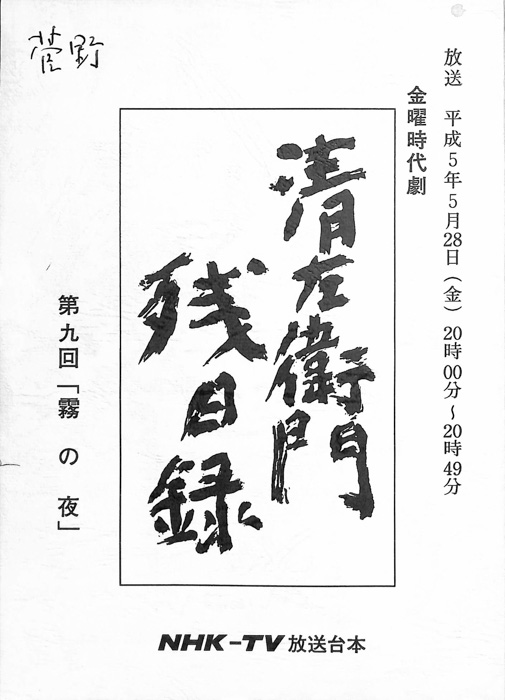 放送 平成5年5月28日(金)20時00分~20時49分
金曜時代劇
清左衛門
残日録
第九回「霧の夜」
菅野
NHK-TV 放送台本